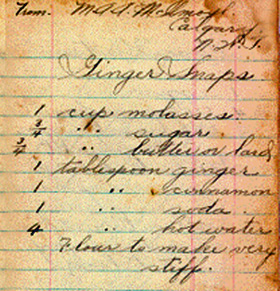 From. Mrs. A.
Calgary
Ginger Snaps
1 cup molasses.
3/4 " sugar.
3/4 " butter or lard
1 tablespoon ginger
1 " cinnamon
1 " soda.
4 " hot water
Flour to make very
stiff.